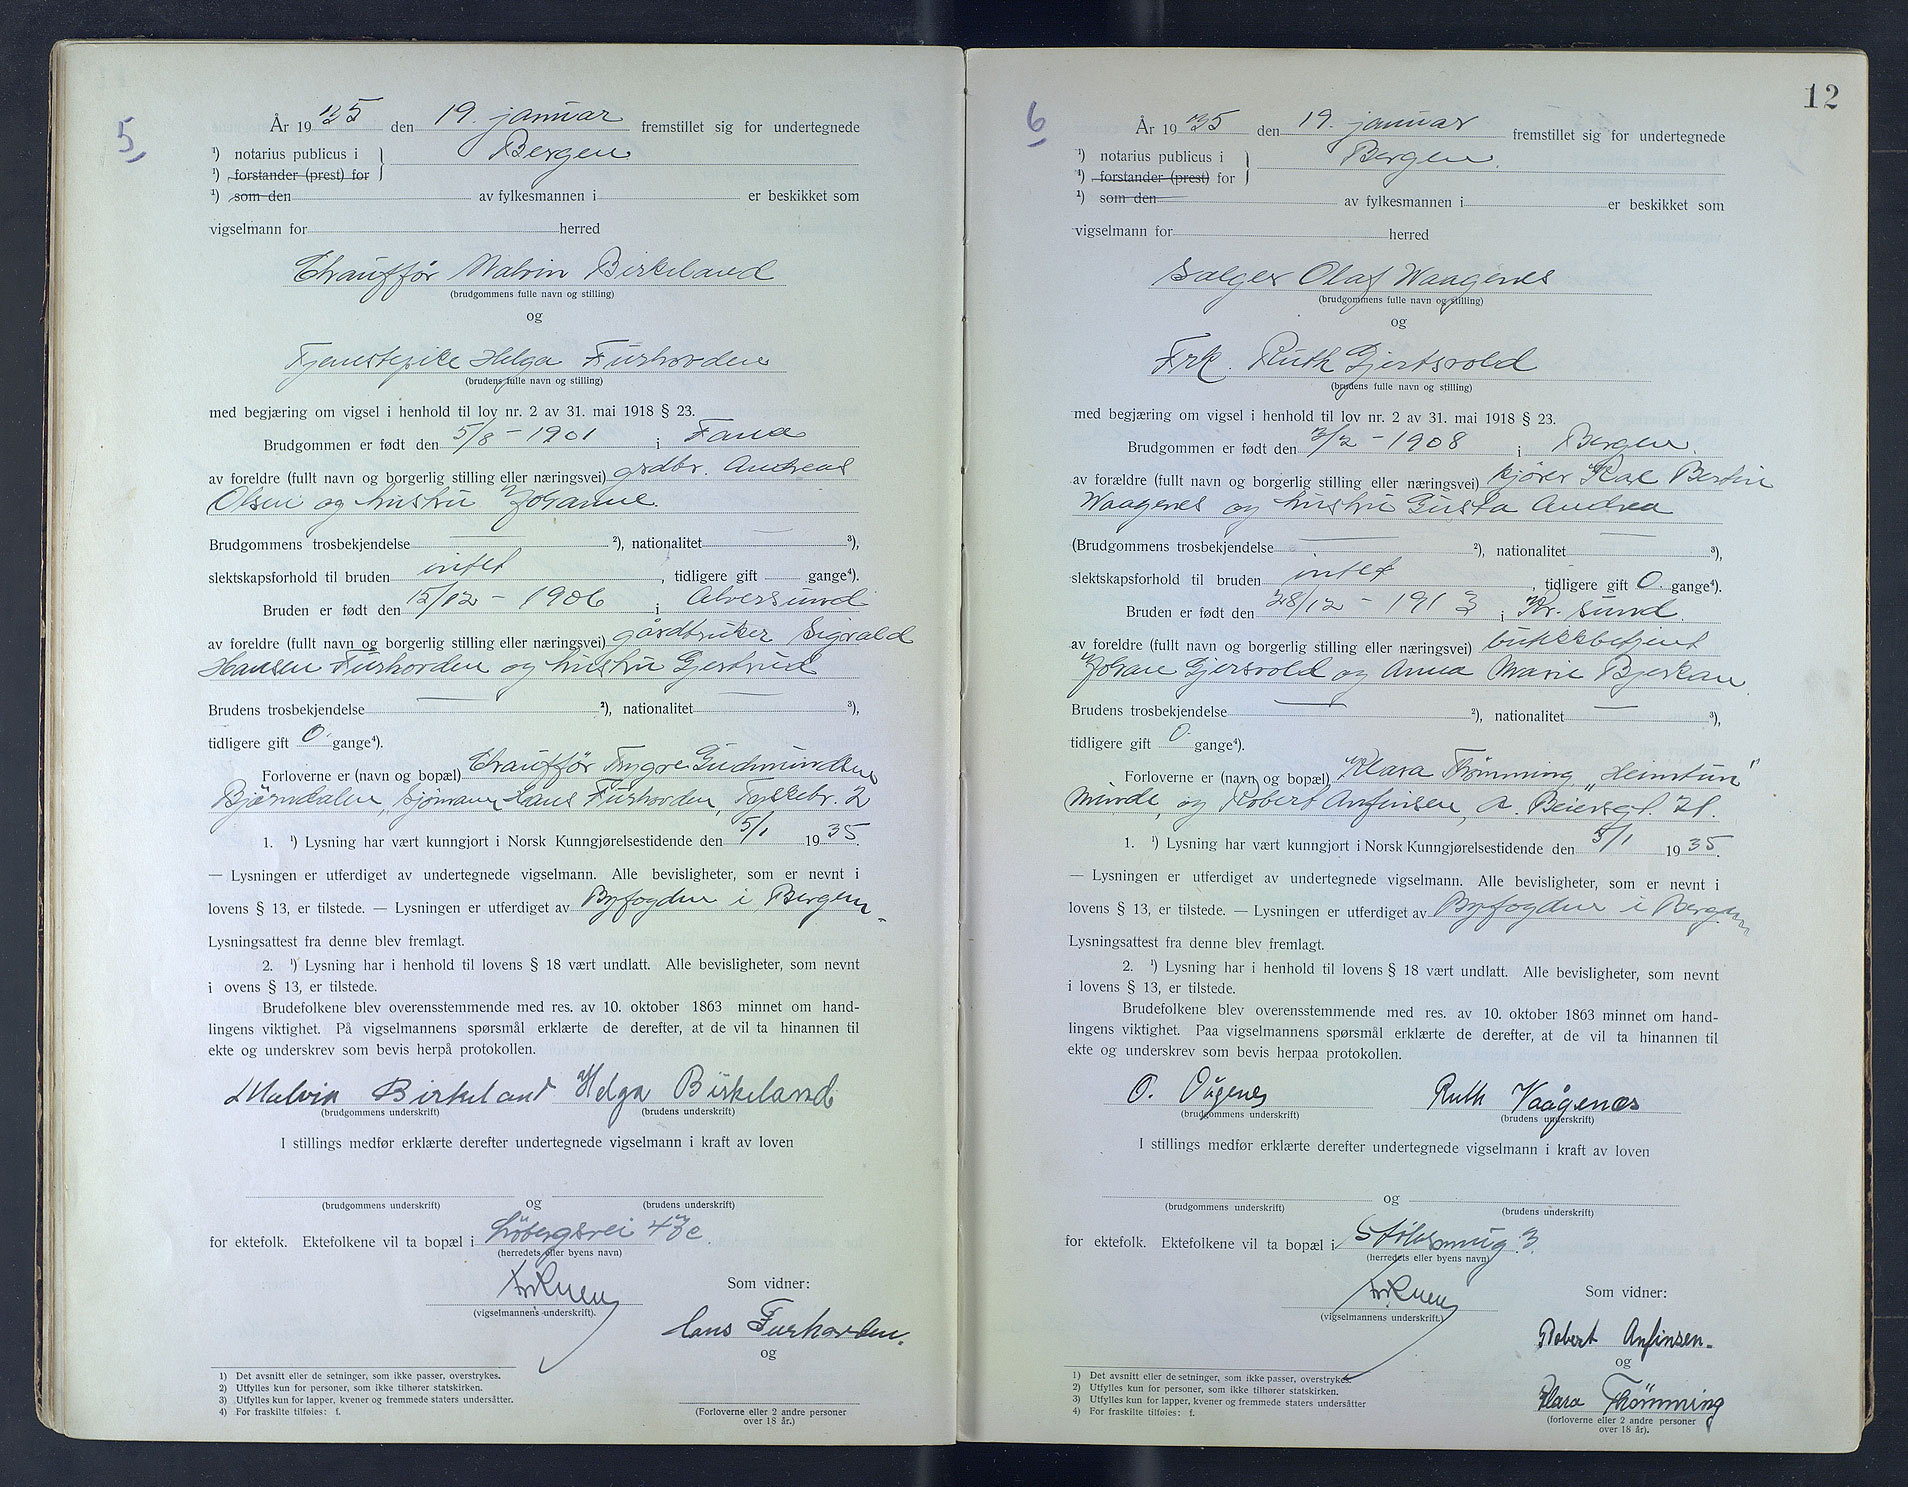 5,
År 19 35 den 19. januar fremstillet sig for undertegnede
¹) notarius publicus i } Bergen
¹) forstander (prest) for
¹) som den av fylkesmannen i er beskikket som
vigselmann for herred
Chauffør Malvin Birkeland
(brudgommens fulle navn og stilling)
og
Tjenestepike Helga Furhovden
(brudens fulle navn og stilling)
med begjæring om vigsel i henhold til lov nr. 2 av 31. mai 1918 § 23.
Brudgommen er født den 5/8 - 1901 i Fana
av foreldre (fullt navn og borgerlig stilling eller næringsvei) grdbr. Andreas
Olsen og hustru Johanne.
Brudgommens trosbekjendelse — ²), nationalitet ³),
slektskapsforhold til bruden intet, tidligere gift gange⁴).
Bruden er født den 15/12 - 1906 i Alversund
av foreldre (fullt navn og borgerlig stilling eller næringsvei) gårdbruker Sigvald
Hansen Furhovden og hustru Gjertrud
Brudens trosbekjendelse — ²), nationalitet — ³),
tidligere gift 0 gange⁴).
Forloverne er (navn og bopæl) Chauffør Gudmundsen
Bjørndalen, sjømann Hans Furhovden, Tyskebr. 2
1. ¹) Lysning har vært kunngjort i Norsk Kunngjørelsestidende den 5/1 19 35.
— Lysningen er utferdiget av undertegnede vigselmann. Alle bevisligheter, som er nevnt i
lovens § 13, er tilstede. — Lysningen er utferdiget av Byfogden i Bergen
Lysningsattest fra denne blev fremlagt.
2. ¹) Lysning har i henhold til lovens § 18 vært undlatt. Alle bevisligheter, som nevnt
i ovens § 13, er tilstede.
Brudefolkene blev overensstemmende med res. av 10. oktober 1863 minnet om hand-
lingens viktighet. På vigselmannens spørsmål erklærte de derefter, at de vil ta hinannen til
ekte og underskrev som bevis herpå protokollen.
Malvin Birkeland Helga Birkeland
(brudgommens underskrift) (brudens underskrift)
I stillings medfør erklærte derefter undertegnede vigselmann i kraft av loven
og
(brudgommens underskrift) (brudens underskrift)
for ektefolk. Ektefolkene vil ta bopæl i Løbergsvei
(herredets eller byens navn)
(vigselmannens underskrift).
Som vidner:
Hans Furhovden.
og
1) Det avsnitt eller de setninger, som ikke passer, overstrykes.
2) Utfylles kun for personer, som ikke tilhører statskirken.
3) Utfylles kun for lapper, kvener og fremmede staters undersåtter.
4) For fraskilte tilføies: f.
(Forloverne eller 2 andre personer
over 18 år.)
12
6
År 19 35 den 19. januar fremstillet sig for undertegnede
¹) notarius publicus i } Bergen.
¹) forstander (prest) for
¹) som den av fylkesmannen i er beskikket som
vigselmann for herred
Sælger Olaf Waagenes
(brudgommens fulle navn og stilling)
og
Frk. Ruth Gjertsvold
(brudens fulle navn og stilling)
med begjæring om vigsel i henhold til lov nr. 2 av 31. mai 1918 § 23.
Brudgommen er født den 3/2 - 1908 i Bergen.
av forældre (fullt navn og borgerlig stilling eller næringsvei) kjører Bertin
Waagenes og hustru Gusta Andrea
(Brudgommens trosbekjendelse — ²), nationalitet — ³),
slektskapsforhold til bruden intet, tidligere gift 0 gange⁴).
Bruden er født den 28/12 - 1913 i Kr. sund.
av foreldre (fullt navn og borgerlig stilling eller næringsvei)
Johan Gjersvold og Anna Marie Bjerkan.
Brudens trosbekjendelse — ²), nationalitet — ³),
tidligere gift 0 gange⁴).
Forloverne er (navn og bopæl) Klara Thømming, "Heimtun"
Minde, og Robert Anfinsen, A. Beiersgt. 21.
1. ¹) Lysning har vært kunngjort i Norsk Kunngjørelsestidende den 5/1 19 35.
— Lysningen er utferdiget av undertegnede vigselmann. Alle bevisligheter, som er nevnt i
lovens § 13, er tilstede. — Lysningen er utferdiget av Byfogden i Bergen
Lysningsattest fra denne blev fremlagt.
2. ¹) Lysning har i henhold til lovens § 18 vært undlatt. Alle bevisligheter, som nevnt
i lovens § 13, er tilstede.
Brudefolkene blev overensstemmende med res. av 10. oktober 1863 minnet om hand-
lingens viktighet. Paa vigselmannens spørsmål erklærte de derefter, at de vil ta hinannen til
ekte og underskrev som bevis herpaa protokollen.
O. Vågenes Ruth Vaagenes
(brudgommens underskrift) (brudens underskrift)
I stillings medfør erklærte derefter undertegnede vigselmann i kraft av loven
og
(brudgommens underskrift) (brudens underskrift)
for ektefolk. Ektefolkene vil ta bopæl i Stølesmug 3.
(herredets eller byens navn)
(vigselmannens underskrift.)
Som vidner:
Robert Anfinsen.
og
Klara Thømming
1) Det avsnitt eller de setninger, som ikke passer, overstrykes.
2) Utfylles kun for personer, som ikke tilhører statskirken.
3) Utfylles kun for lapper, kvener og fremmede staters undersåtter
4) For fraskilte tilføies: f.
(forloverne eller 2 andre personer
over 18 år).